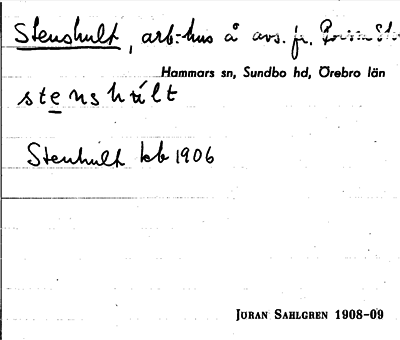 Stenshult, arb:-hus å avs. fr.
Hammars sn, Sundbo hd, Örebro län
stenshúlt
Stenhult kb 1906
JURAN SAHLGREN 1908-09